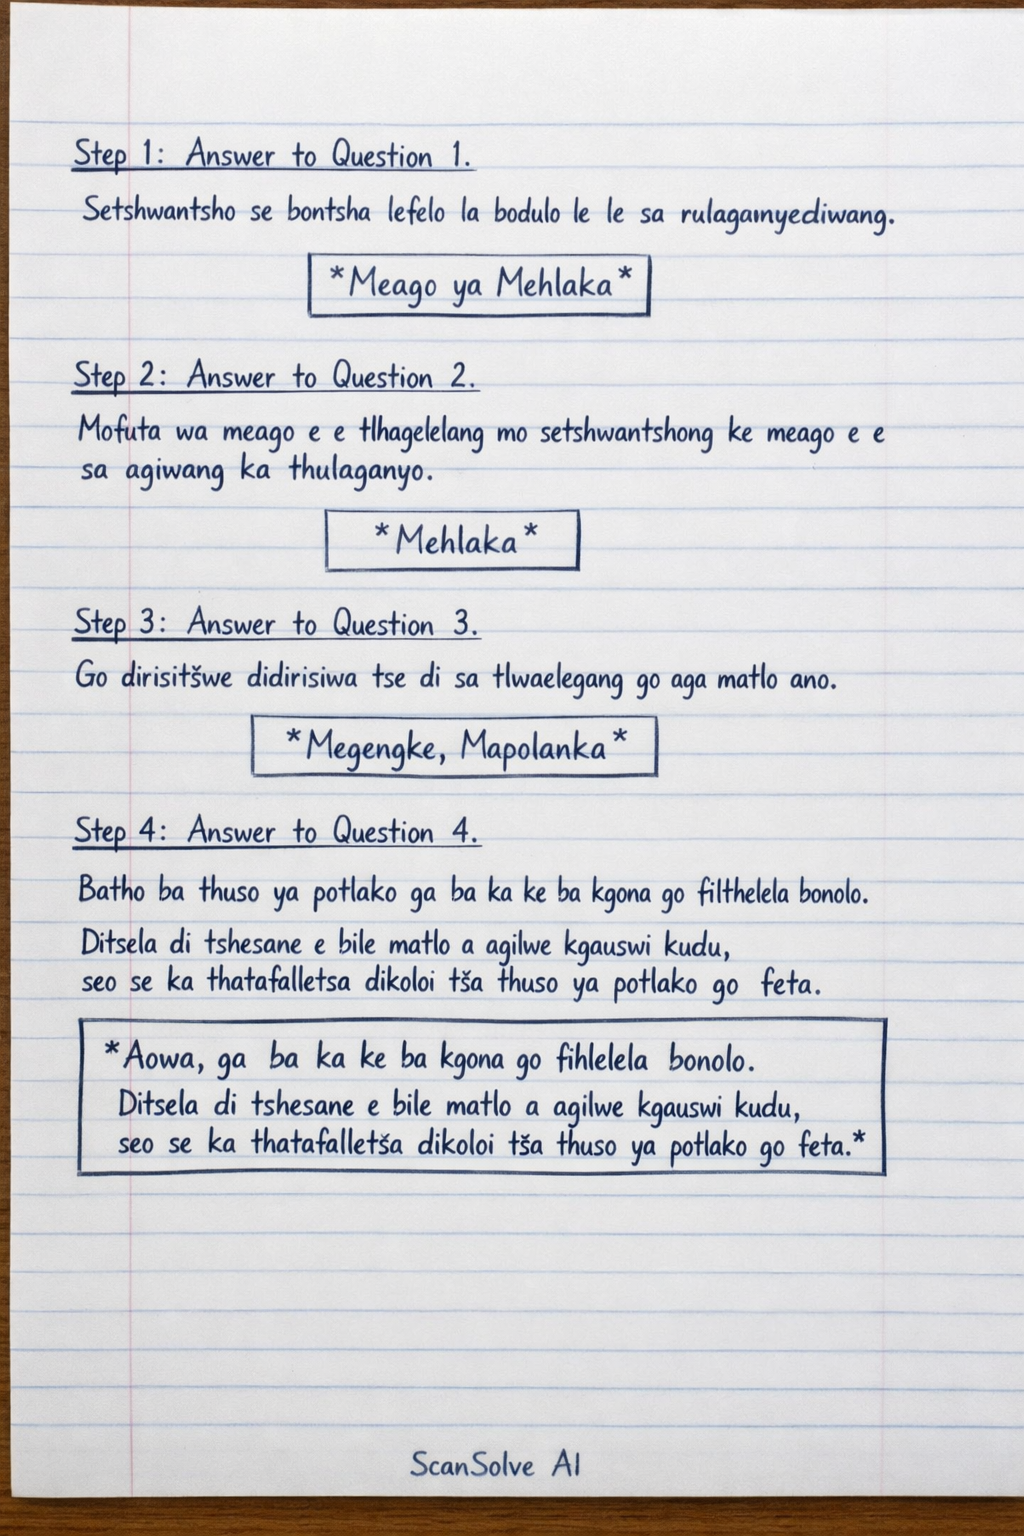 Step 1: Answer to Question 1.
Setshwantsho se bontsha lefelo la bodulo le le sa rulagamyediwang.
*Meago ya Mehlaka*
Step 2: Answer to Question 2.
Mofuta wa meago e e tlhagelelang mo setshwantshong ke meago e e
sa agiwang ka thulaganyo.
*Mehlaka*
Step 3: Answer to Question 3.
Go dirisitšwe didirisiwa tse di sa tlwaelegang go aga matlo ano.
*Megengke, Mapolanka*
Step 4: Answer to Question 4.
Batho ba thuso ya potlako ga ba ka ke ba kgona go filthelela bonolo.
Ditsela di tshesane e bile matlo a agilwe kgauswi kudu,
seo se ka thatafalletsa dikoloi tša thuso ya potlako go feta.
*Aowa, ga ba ka ke ba kgona go fihlelela bonolo.
Ditsela di tshesane e bile matlo a agilwe kgauswi kudu,
seo se ka thatafalletša dikoloi tša thuso ya potlako go feta.*
ScanSolve AI